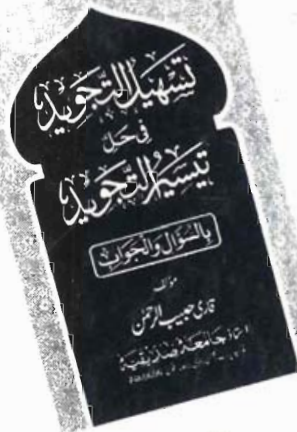 تسهيل التجويد
فی حل
تيسير التجويد
بالسؤال والجواب
مؤلف
قاری حبیب الرحمن
استاذ جامعہ صدیقیہ